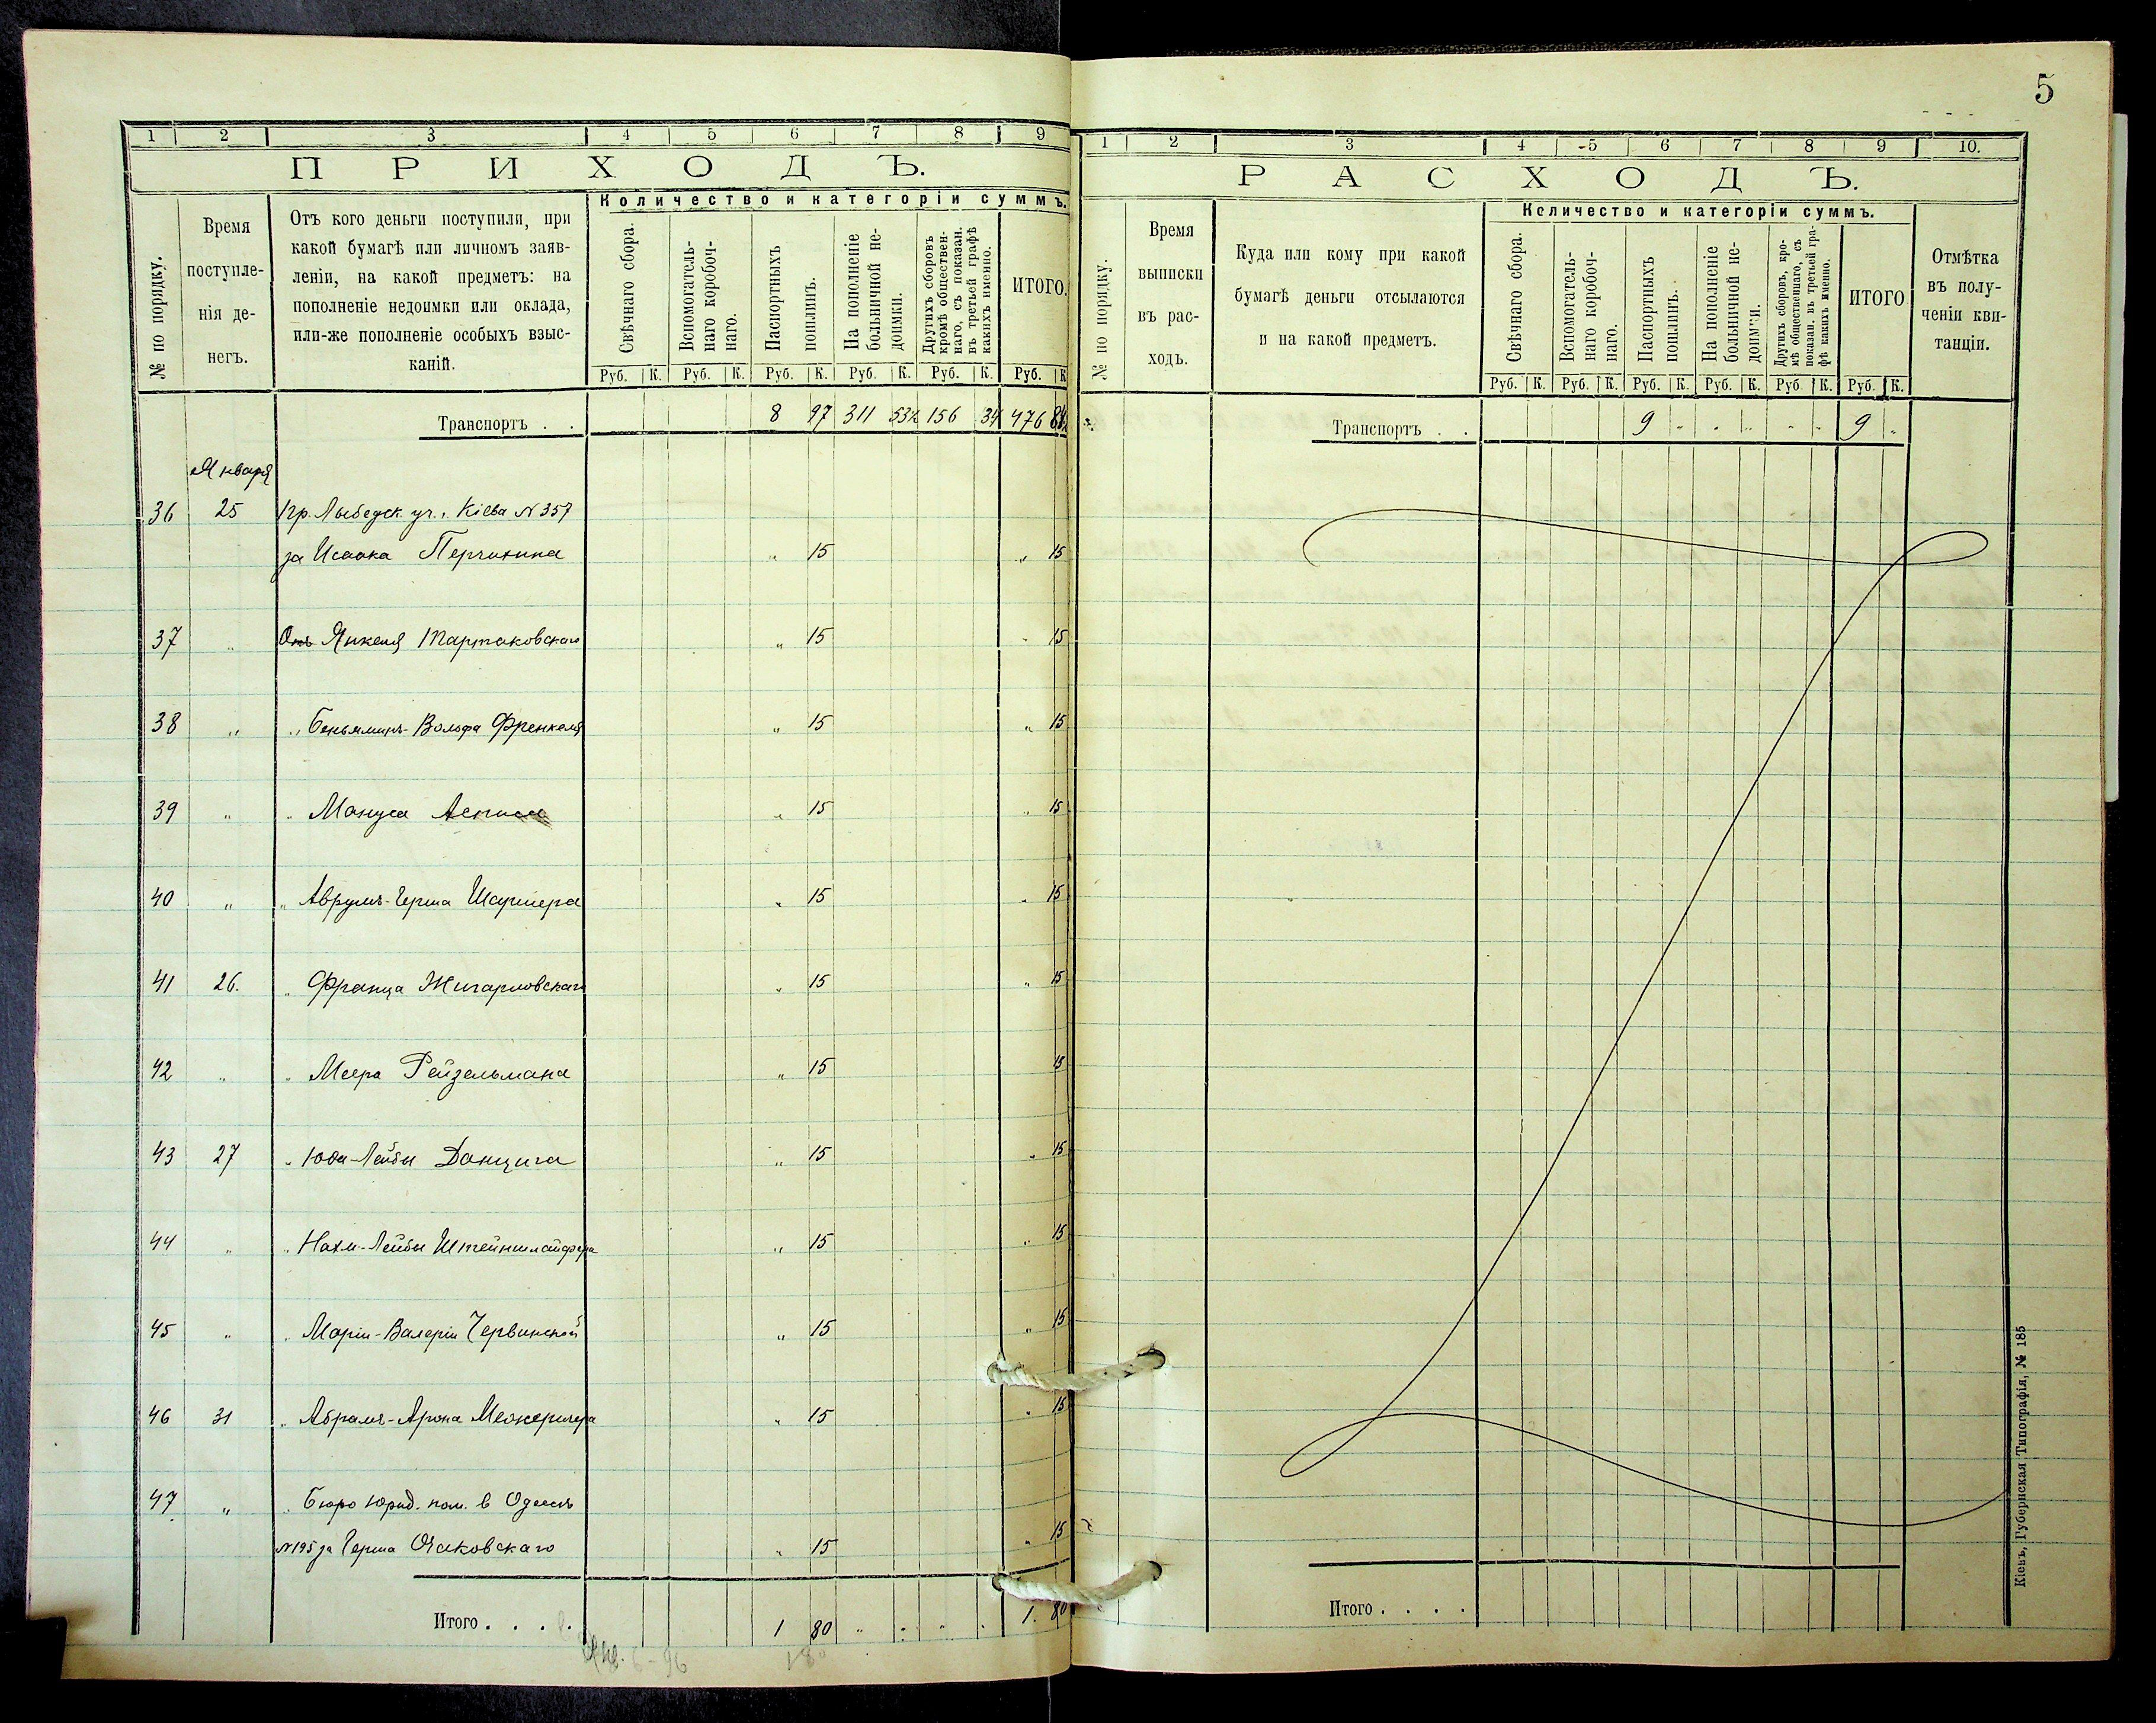 5
1 2 3 4 5 6 7 8 9
ПРИХОДЪ.
№ по порядку.
Время
поступле-
нія де-
негъ.
Отъ кого деньги поступили, при
какой бумагѣ или личномъ заяв-
леніи, на какой предметъ: на
пополненіе недоимки или оклада,
или-же пополненіе особыхъ взыс-
каній.
Количество и категоріи суммъ.
Свѣчнаго сбора.
Вспомогатель-
наго коробоч-
наго.
Паспортныхъ
пошлинъ.
На пополненіе
больничной не-
доимки.
Другихъ сборовъ
кромѣ обществен-
наго, съ показан.
въ третьей графѣ
какихъ именно.
ИТОГО.
Руб. К. Руб. К. Руб. К. Руб. К. Руб. К. Руб. К
Транспортъ . . 8 97 311 53½ 156 34 476 84½
Января
36 25 Пр. Лыбедск. уч. г. Кіева №357
за Исаака Перчикина „ 15 „ 15
37 „ Отъ Янкеля Тартаковскаго „ 15 „ 15
38 „ „ Беньяминъ-Вольфа Френкеля „ 15 „ 15
39 „ „ Мануса „ 15 „ 15
40 „ „ Аврумъ-Герша „ 15 „ 15
41 26. „ Франца „ 15 „ 15
42 „ „ Меера Рейзельмана „ 15 15
43 27 „ Юда-Лейбы Данцига „ 15 „ 15
44 „ „ Нахм-Лейбы Штейншлайфера „ 15 „ 15
45 „ „ Маріи-Валеріи Червинской „ 15 „ 15
46 31 „ Абрамъ-Арона Межеричера „ 15 „ 15
47 „ „ Бюро юрид. пом. в Одессѣ
№195 за Герша Очаковскаго „ 15 „ 15
Итого . . . . 1 80 „ „ „ „ 1. 80
1 2 3 4 5 6 7 8 9 10.
РАСХОДЪ.
№ по порядку.
Время
выписки
въ рас-
ходъ.
Куда или кому при какой
бумагѣ деньги отсылаются
и на какой предметъ.
Количество и категоріи суммъ.
Свѣчнаго сбора.
Вспомогатель-
наго коробоч-
наго.
Паспортныхъ
пошлинъ.
На пополненіе
больничной не-
доимки.
Другихъ сборовъ, кро-
мѣ общественнаго, съ
показан. въ третьей гра-
фѣ какихъ именно.
ИТОГО
Отмѣтка
въ полу-
ченіи кви-
танціи.
Руб. К. Руб. К. Руб. К. Руб. К. Руб. К. Руб. К.
Транспортъ . . 9 „ „ „ „ „ 9 „
Итого . . . .
Кіевъ, Губернская Типографія, № 185